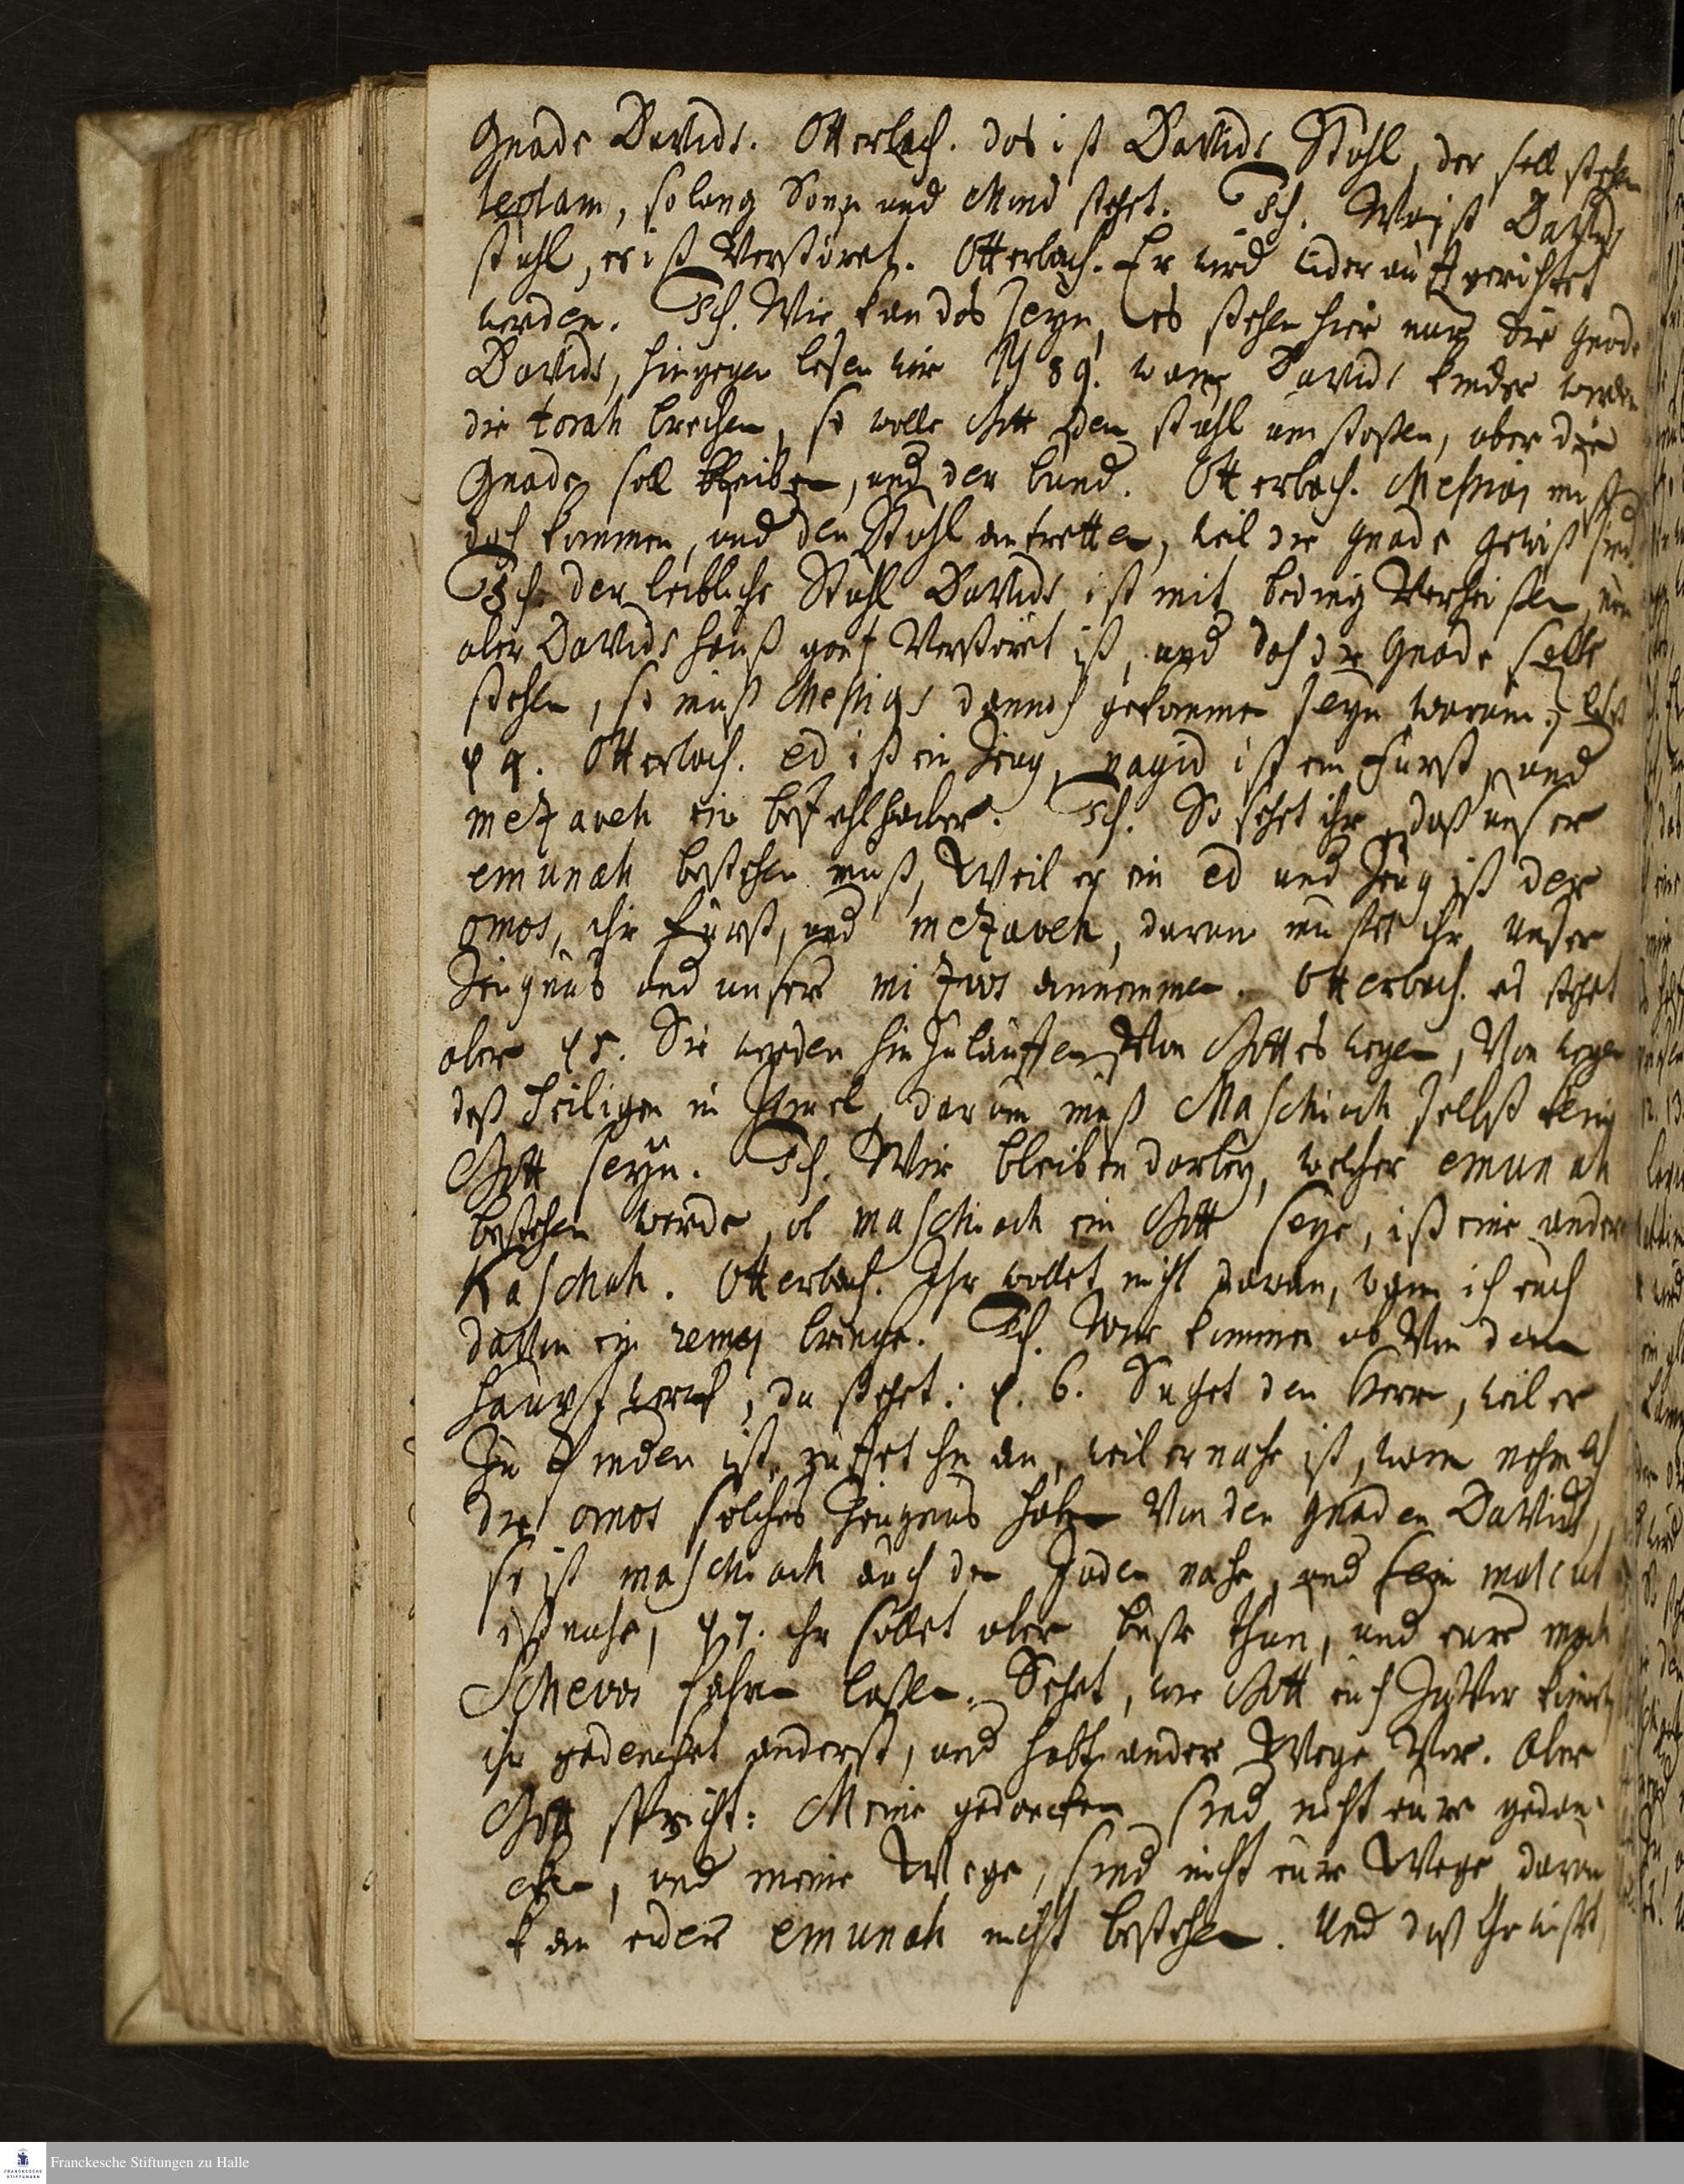 Gnade Davids. Otterbach. das ist Davids Stuhl, der soll stehen
leolam, so lang Sonn und Mond stehet. Ich. Wo ist Davids
stuhl, er ist Verstöret. Otterbach. Er wird wider auffgerichtet
werden. Ich. Wie kan das seyn, es stehen hier nur die gnade
Davids, hingegen lesen wir Ps 89. wann Davids kinder werden
die torah brechen, so wolle Gott den stuhl umstoßen, aber die
Gnade soll bleiben, und der bund. Otterbach. Messias muß
doch kommen, und den Stuhl antretten, weil die gnade gewiß sind.
Ich. der leibliche Stuhl Davids ist mit beding Verheißen, nun
aber Davids hauß gantz Verstöret ist, und doch die gnade solle
stehen, so muß Messias dennoch gekommen seyn warum?
v 4. Otterbach. ed ist ein Zeug, nagid ist ein Fürst, und
mezaveh ein befehlhaber. Ich. So sehet ihr, daß unser
emunah bestehen muß, Weil er ein ed und Zeug ist der
omos, ihr Fürst, und mezaveh, darum müsset ihr unser
Zeugnus und unsere mizvos annemmen. Otterbach. es stehet
aber v 5. Sie werden hinzulauffen Von Gottes wegen, Von wegen
deß heiligen in Israel, darum muß Maschiach selbst kein
Gott seyn. Ich. Wir bleiben darbey, welcher emunah
bestehen werde, ob maschiach ein Gott seye, ist eine andere
Kaschah. Otterbach. Ihr wollet nicht daran, wann ich euch
davon ein remes bringe. Ich. Wir kommen ab Von dem
hauptwerck, da stehet: v. 6. Suchet den Herrn, weil er
zu finden ist, ruffet ihn an, weil er nahe ist, wann nehmlich
die omos solches Zeugnus haben Von den gnaden Davids,
so ist maschiach auch den Juden nahe, und sein malcus
ist nahe, v 7. ihr sollet aber buße thun, und eure mach
schevos fahren lassen. Sehet, wie Gott euch zuVor kommt
ihr gedencket anderst, und habt andere Wege Vor. Aber
Gott spricht: Meine gedancken sind nicht eure gedan-
cken, und meine Wege, sind nicht eure Wege darum
kan eüere emunah nicht bestehen. Und daß ihr wisset,
Franckesche Stiftungen zu Halle